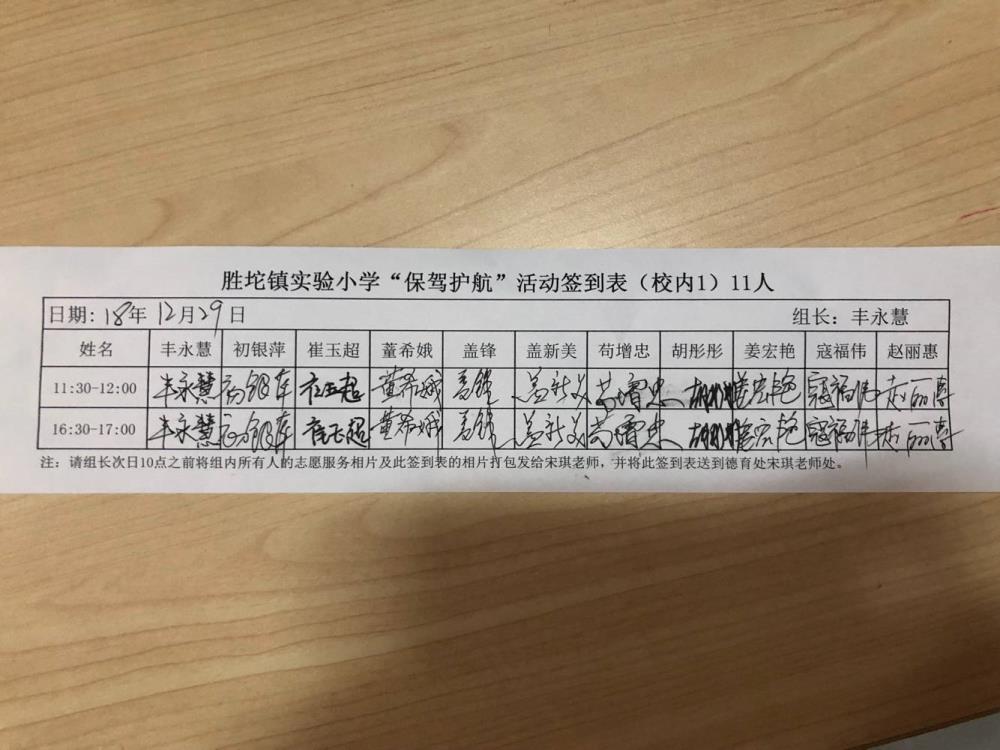 胜坨镇实验小学“保驾护航”活动签到表（校内1）11人
日期: 18年 12月29日 组长：丰永慧
姓名 丰永慧 初银萍 崔玉超 董希娥 盖锋 盖新美 苟增忠 胡彤彤 姜宏艳 寇福伟 赵丽惠
11:30-12:00 丰永慧 初银萍 崔玉超 董希娥 盖锋 盖新美 苟增忠 胡彤彤 姜宏艳 寇福伟 赵丽惠
16:30-17:00 丰永慧 初银萍 崔玉超 董希娥 盖锋 盖新美 苟增忠 胡彤彤 姜宏艳 寇福伟 赵丽惠
注：请组长次日10点之前将组内所有人的志愿服务相片及此签到表的相片打包发给宋琪老师，并将此签到表送到德育处宋琪老师处。